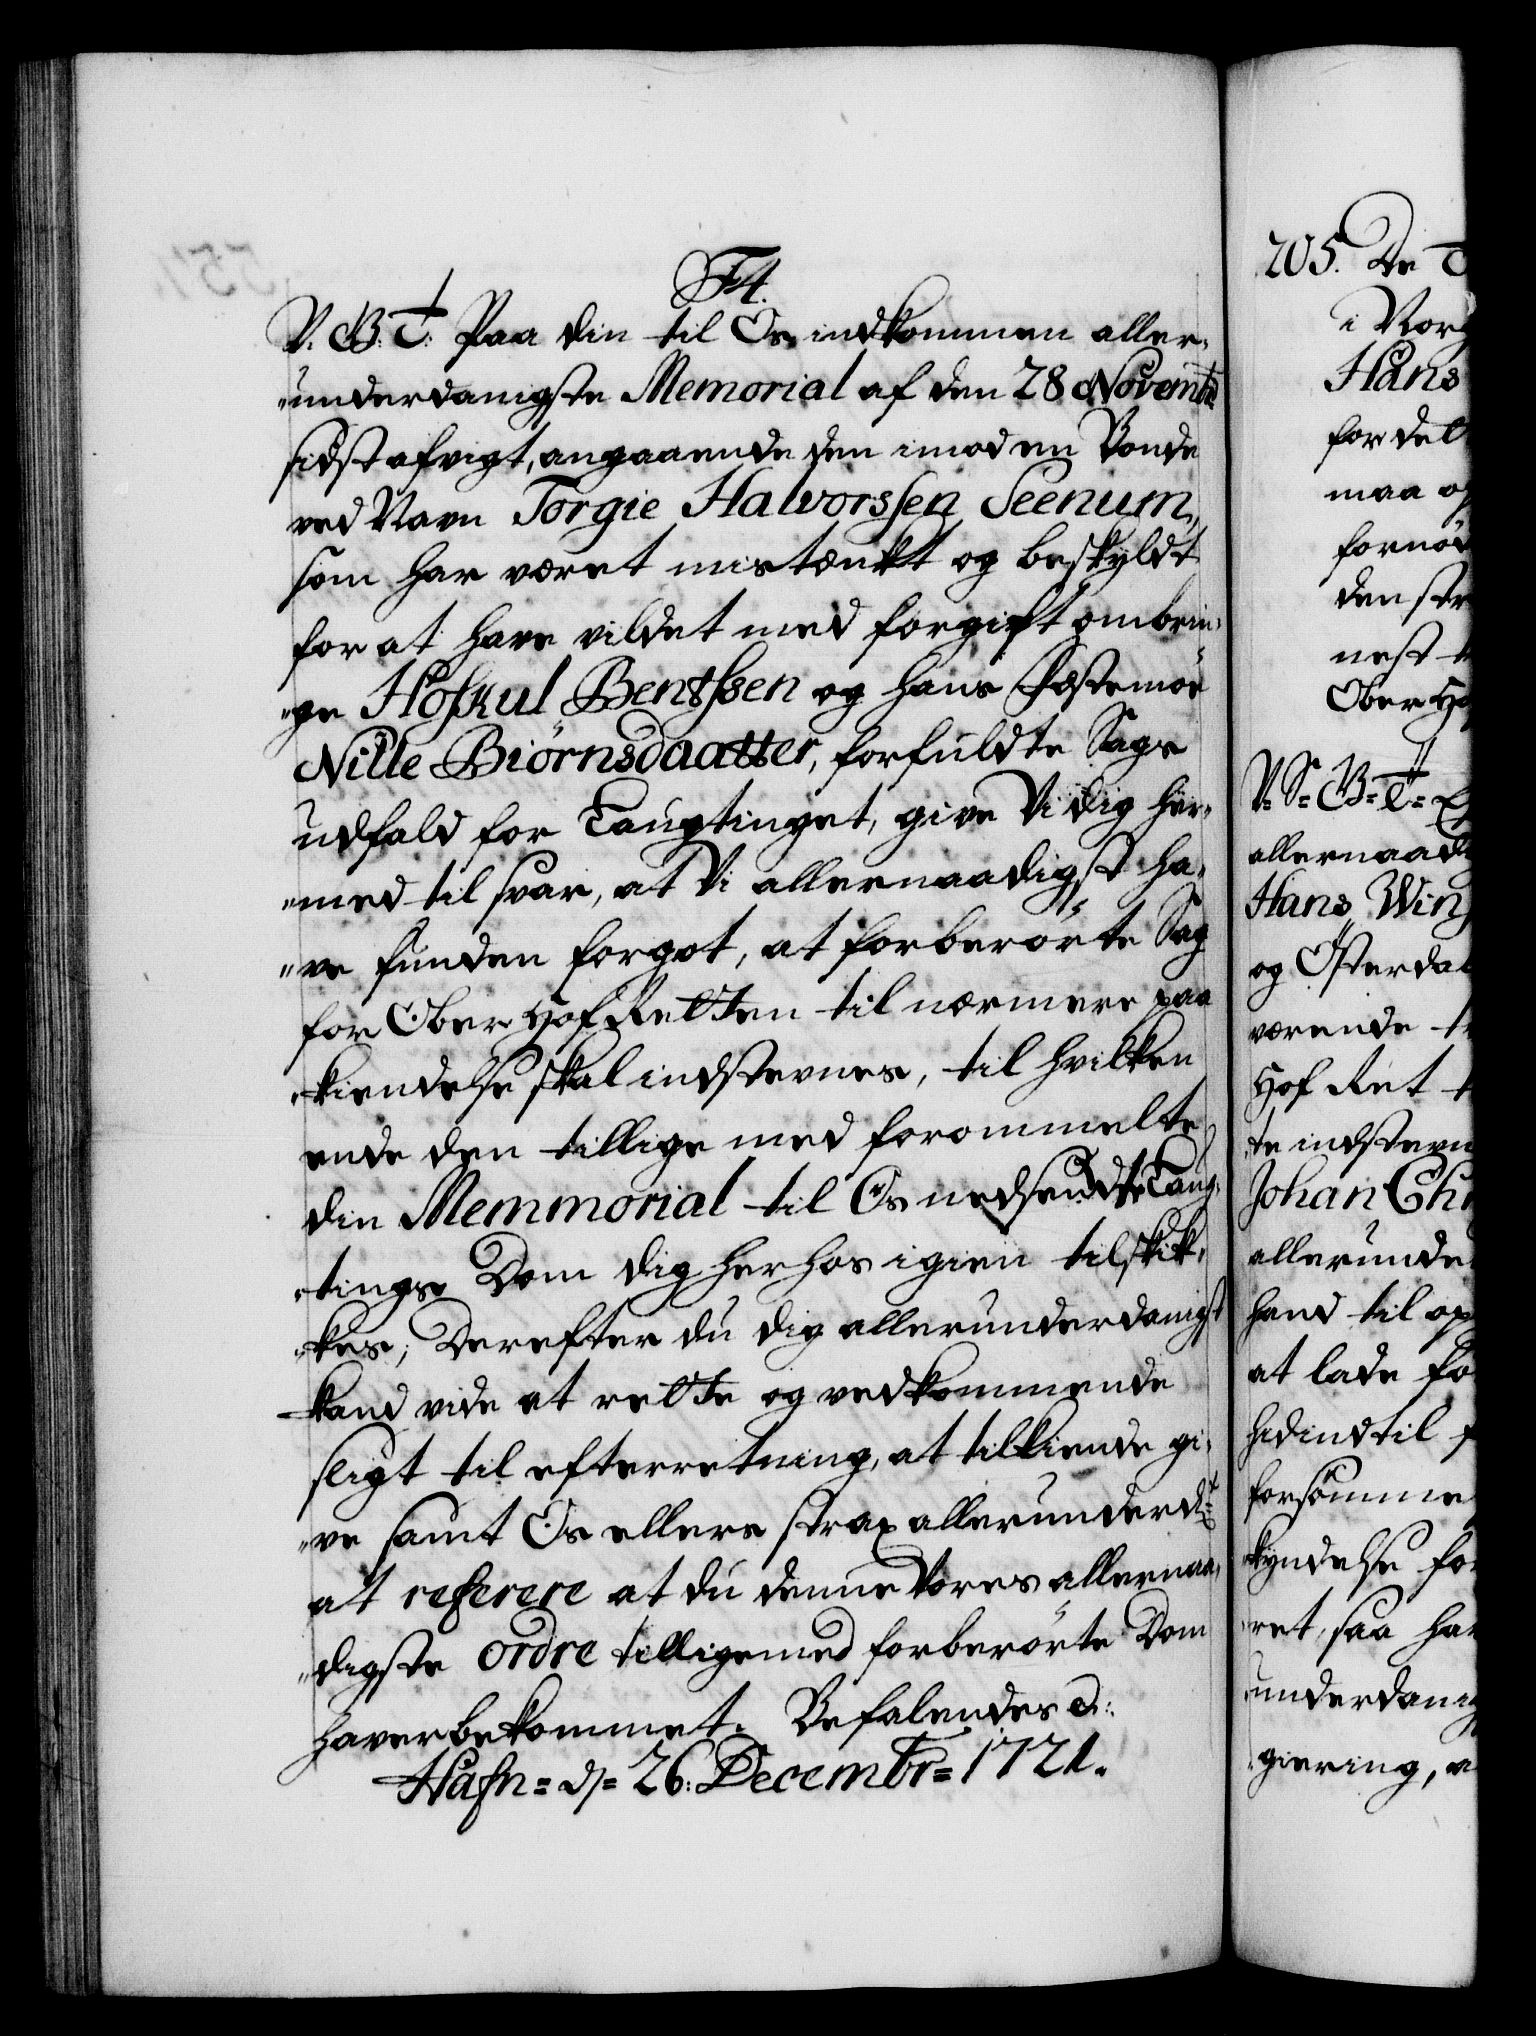 F4.
V. G: T: Paa din til Os indkommen aller,
"underdanigste Memorial af den 28 Novembr
sidst afvigt, angaaende den imod en Bonde
ved Navn Torgie Halvorssen Seenum,
som har været mistænkt og beskyldt
for at have vildet med forgift ombrin,
"ge Hoskul Bentssen og hans Festemøe
Nille Biörnsdaatter, forfuldte Sags
udfald for Laugtinget, give Vi dig her,
"med til svar, at Vi allernaadigst ha,
"ve funden forgot, at forberörte Sag
for Ober Hof Retten til nærmere paa
"kiendelse skal indstevnes, til hvilken
ende den tillige med forommelte
din Memmorial til Os nedsendte Laug,
"tings Dom dig herhos igien tilskik,
"kes, Derefter du dig allerunderdanigst
kand vide at rette og vedkommende
sligt til efterretning, at tilkiende gi,
"ve samt Os ellers strax allerunderd:
at referere at du denne Vores allernaa,
"digste ordre tilligemed forberörte Dom
haver bekommet. Befalendes d:
Hafn= d= 26: Decembr= 1721.
205. De T
i Nor
Hans
for det
maa o
fornöd
den str
nest t
Ober Ho
V= S= G= T=
allernaadi
Hans Win
og Österdal
værende t
Hof Ret t
"te indstevn
Johan Chr
allerunde
hand til op
at lade fo
hidindtil f
forsömme
"kyndelse for
"ret, saa ha
"underdani
"giering, a